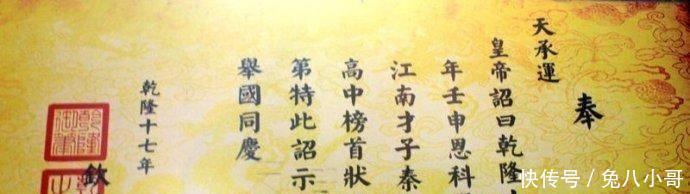 奉
天承運
皇帝詔曰乾隆
年壬申恩科
江南才子秦
高中榜首狀
第特此詔示
舉國同慶
乾隆十七年
欽
快传号 / 兔八小哥